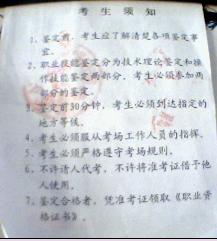 考生须知
1、鉴定前，考生应了解清楚各项鉴定事
宜。
2、职业技能鉴定分为技术理论鉴定和操
作技能鉴定两部分，考生必须参加两
部分的鉴定。
3、鉴定前30分钟，考生必须到达指定的
地方等候。
4、考生必须服从考场工作人员的指挥。
5、考生必须严格遵守考场规则。
6、不许请人代考，不许将准考证借于他
人使用。
7、鉴定合格者，凭准考证领取《职业资
格证书》。